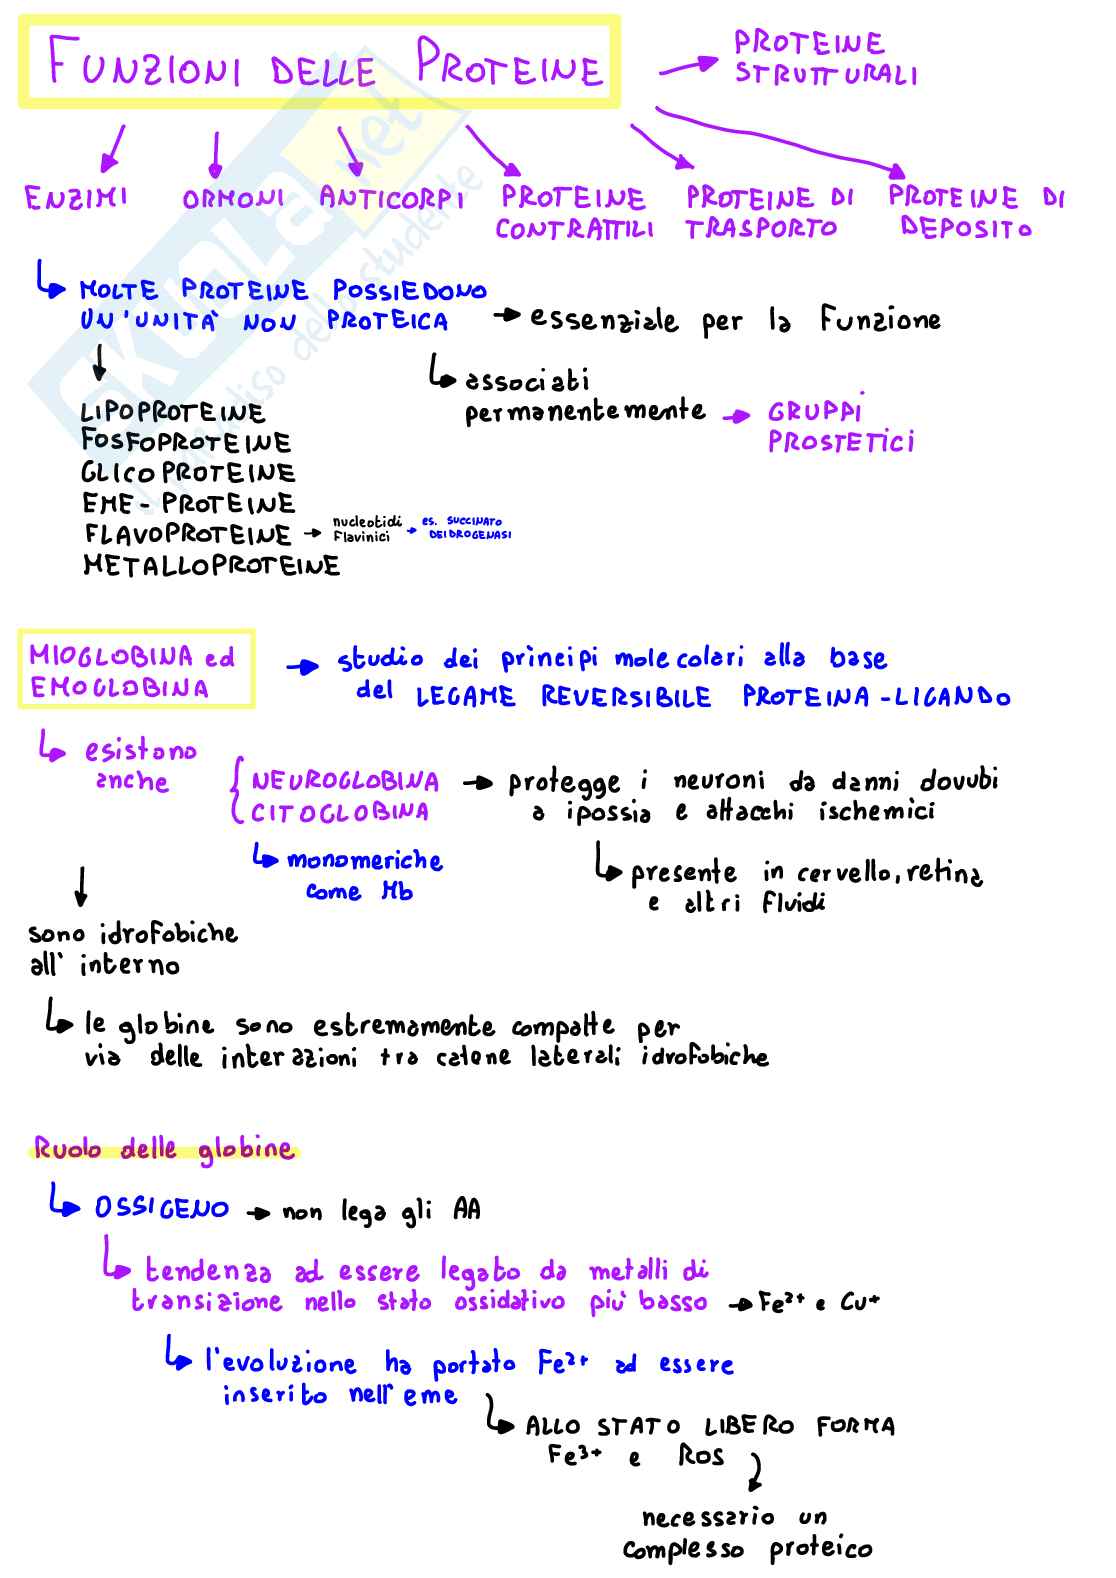 FUNZIONI DELLE PROTEINE
PROTEINE
STRUTTURALI
ENZIMI
ORMONI
ANTICORPI
PROTEINE
CONTRATTILI
PROTEINE DI
TRASPORTO
PROTEINE DI
DEPOSITO
MOLTE PROTEINE POSSIEDONO
UN'UNITÀ NON PROTEICA
essenziale per la Funzione
associati
permanentemente
GRUPPI
PROSTETICI
LIPOPROTEINE
FOSFOPROTEINE
GLICOPROTEINE
EME-PROTEINE
FLAVOPROTEINE
nucleotidi
Flavinici
es. SUCCINATO
DEIDROGENASI
METALLOPROTEINE
MIOGLOBINA ed
EMOGLOBINA
studio dei principi molecolari alla base
del LEGAME REVERSIBILE PROTEINA-LIGANDO
esistono
anche
NEUROGLOBINA
CITOGLOBINA
protegge i neuroni da danni dovubi
a ipossia e attacchi ischemici
monomeriche
come Mb
presente in cervello, retina
e altri Fluidi
sono idrofobiche
all'interno
le globine sono estremamente compatte per
via delle interazioni tra catene laterali idrofobiche
Ruolo delle globine
OSSIGENO
non lega gli AA
tendenza ad essere legato da metalli di
transizione nello stato ossidativo più basso
Fe²⁺ e Cu⁺
l'evoluzione ha portato Fe²⁺ ad essere
inserito nell'eme
ALLO STATO LIBERO FORMA
Fe³⁺ e ROS
necessario un
complesso proteico
SKUOLA.net
il paradiso dello studente